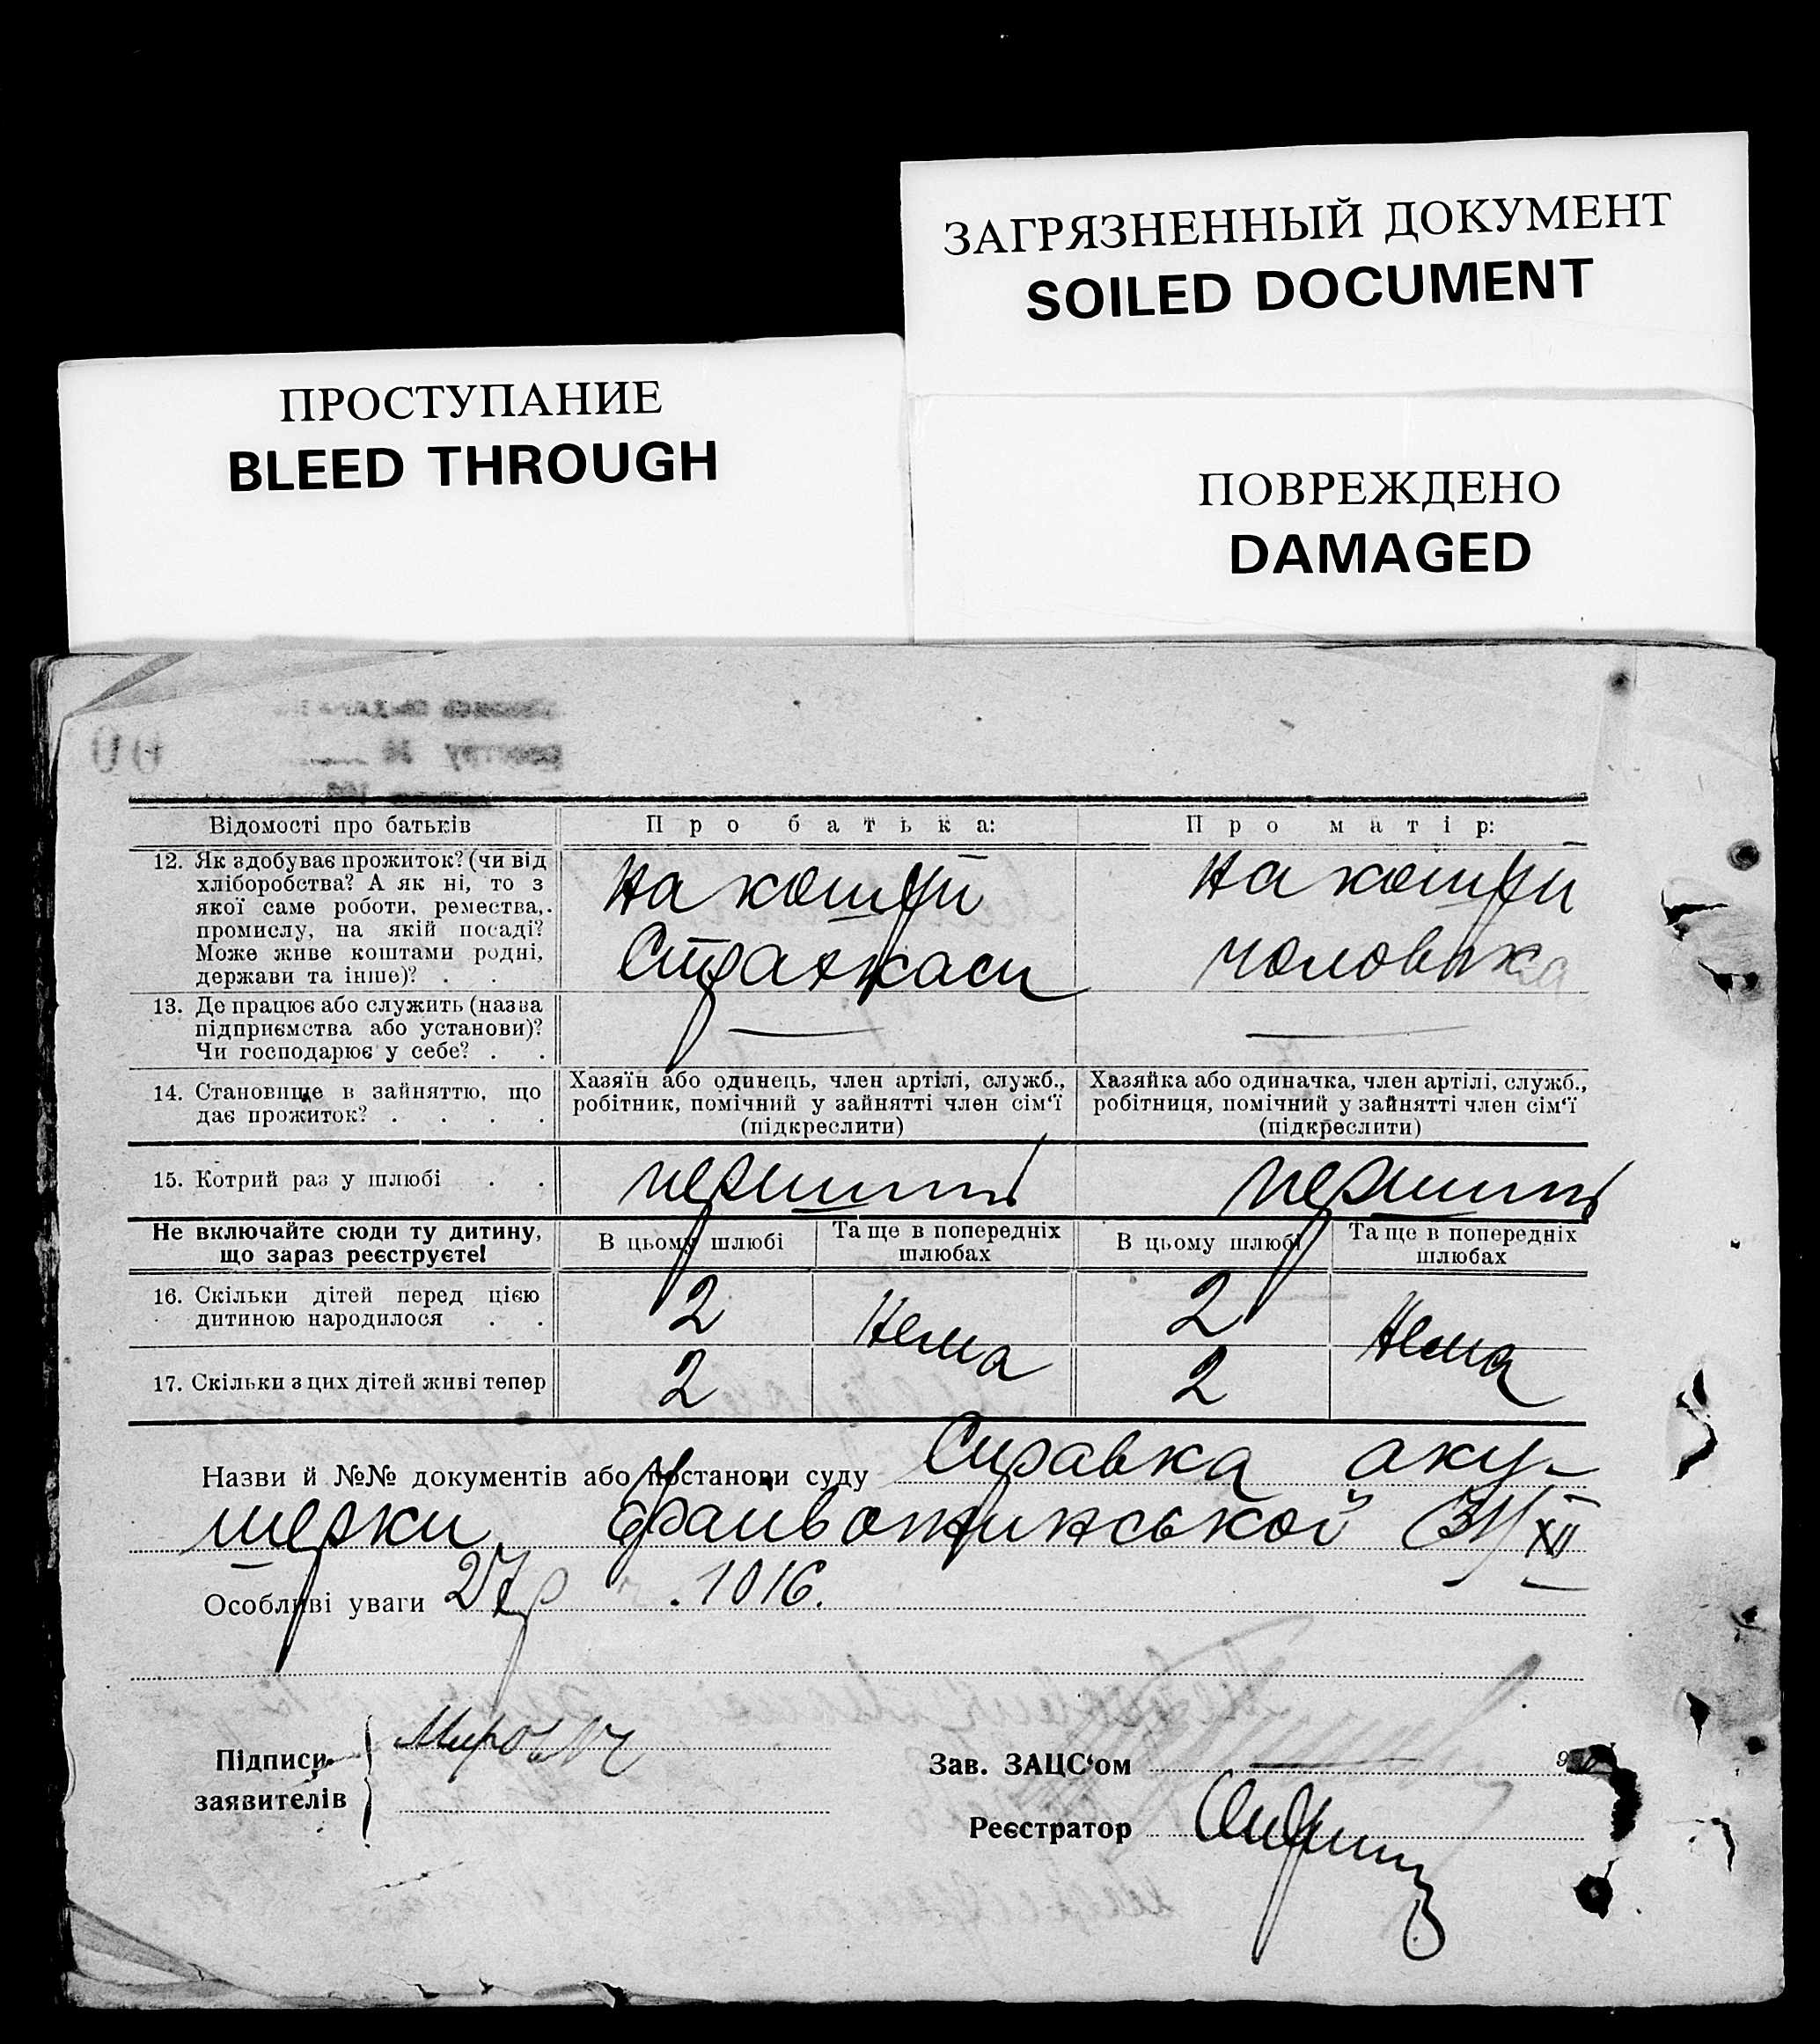 ЗАГРЯЗНЕННЫЙ ДОКУМЕНТ
SOILED DOCUMENT
ПРОСТУПАНИЕ
BLEED THROUGH
ПОВРЕЖДЕНО
DAMAGED
Відомості про батьків
Про батька:
Про матір:
12. Як здобуває прожиток? (чи від
хліборобства? А як ні, то з
якої саме роботи, ремества,
промислу, на якій посаді?
Може живе коштами родні,
держави та інше)? . .
На кошти
Страхкаси
На кошти
чоловіка
13. Де працює або служить (назва
підприємства або установи)?
Чи господарює у себе? . .
—
—
14. Становище в зайняттю, що
дає прожиток? . . . .
Хазяїн або одинець, член артілі, служб.,
робітник, помічний у зайнятті член сім‘ї
(підкреслити)
Хазяйка або одиначка, член артілі, служб.,
робітниця, помічний у зайнятті член сім‘ї
(підкреслити)
15. Котрий раз у шлюбі . .
перший
перший
Не включайте сюди ту дитину,
що зараз реєструєте!
В цьому шлюбі
Та ще в попередніх
шлюбах
В цьому шлюбі
Та ще в попередніх
шлюбах
16. Скільки дітей перед цією
дитиною народилося . .
2
Нема
2
Нема
17. Скільки з цих дітей живі тепер
2
2
Назви й №№ документів або постанови суду Справка аку-
шерки 31/XII
Особливі уваги 27р. 1016.
Підписи
заявителів
Зав. ЗАЦС‘ом
Реєстратор